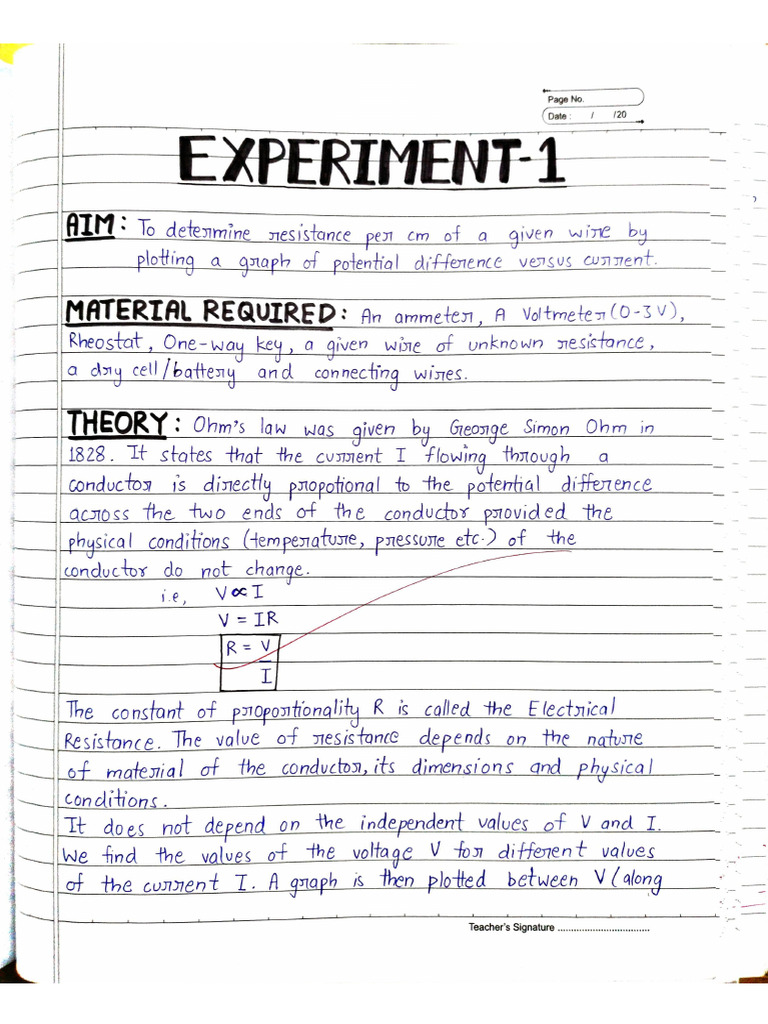 Page No.
Date : / /20
EXPERIMENT-1
AIM: To determine resistance per cm of a given wire by
plotting a graph of potential difference versus current.
MATERIAL REQUIRED: An ammeter, A Voltmeter(0-3V),
Rheostat, One-way key, a given wire of unknown resistance,
a dry cell/battery and connecting wires.
THEORY: Ohm's law was given by George Simon Ohm in
1828. It states that the current I flowing through a
conductor is directly propotional to the potential difference
across the two ends of the conductor provided the
physical conditions (temperature, pressure etc.) of the
conductor do not change.
i.e, V ∝ I
V = IR
R = V
I
The constant of proportionality R is called the Electrical
Resistance. The value of resistance depends on the nature
of material of the conductor, its dimensions and physical
conditions.
It does not depend on the independent values of V and I.
We find the values of the voltage V for different values
of the current I. A graph is then plotted between V (along
Teacher's Signature ..................................